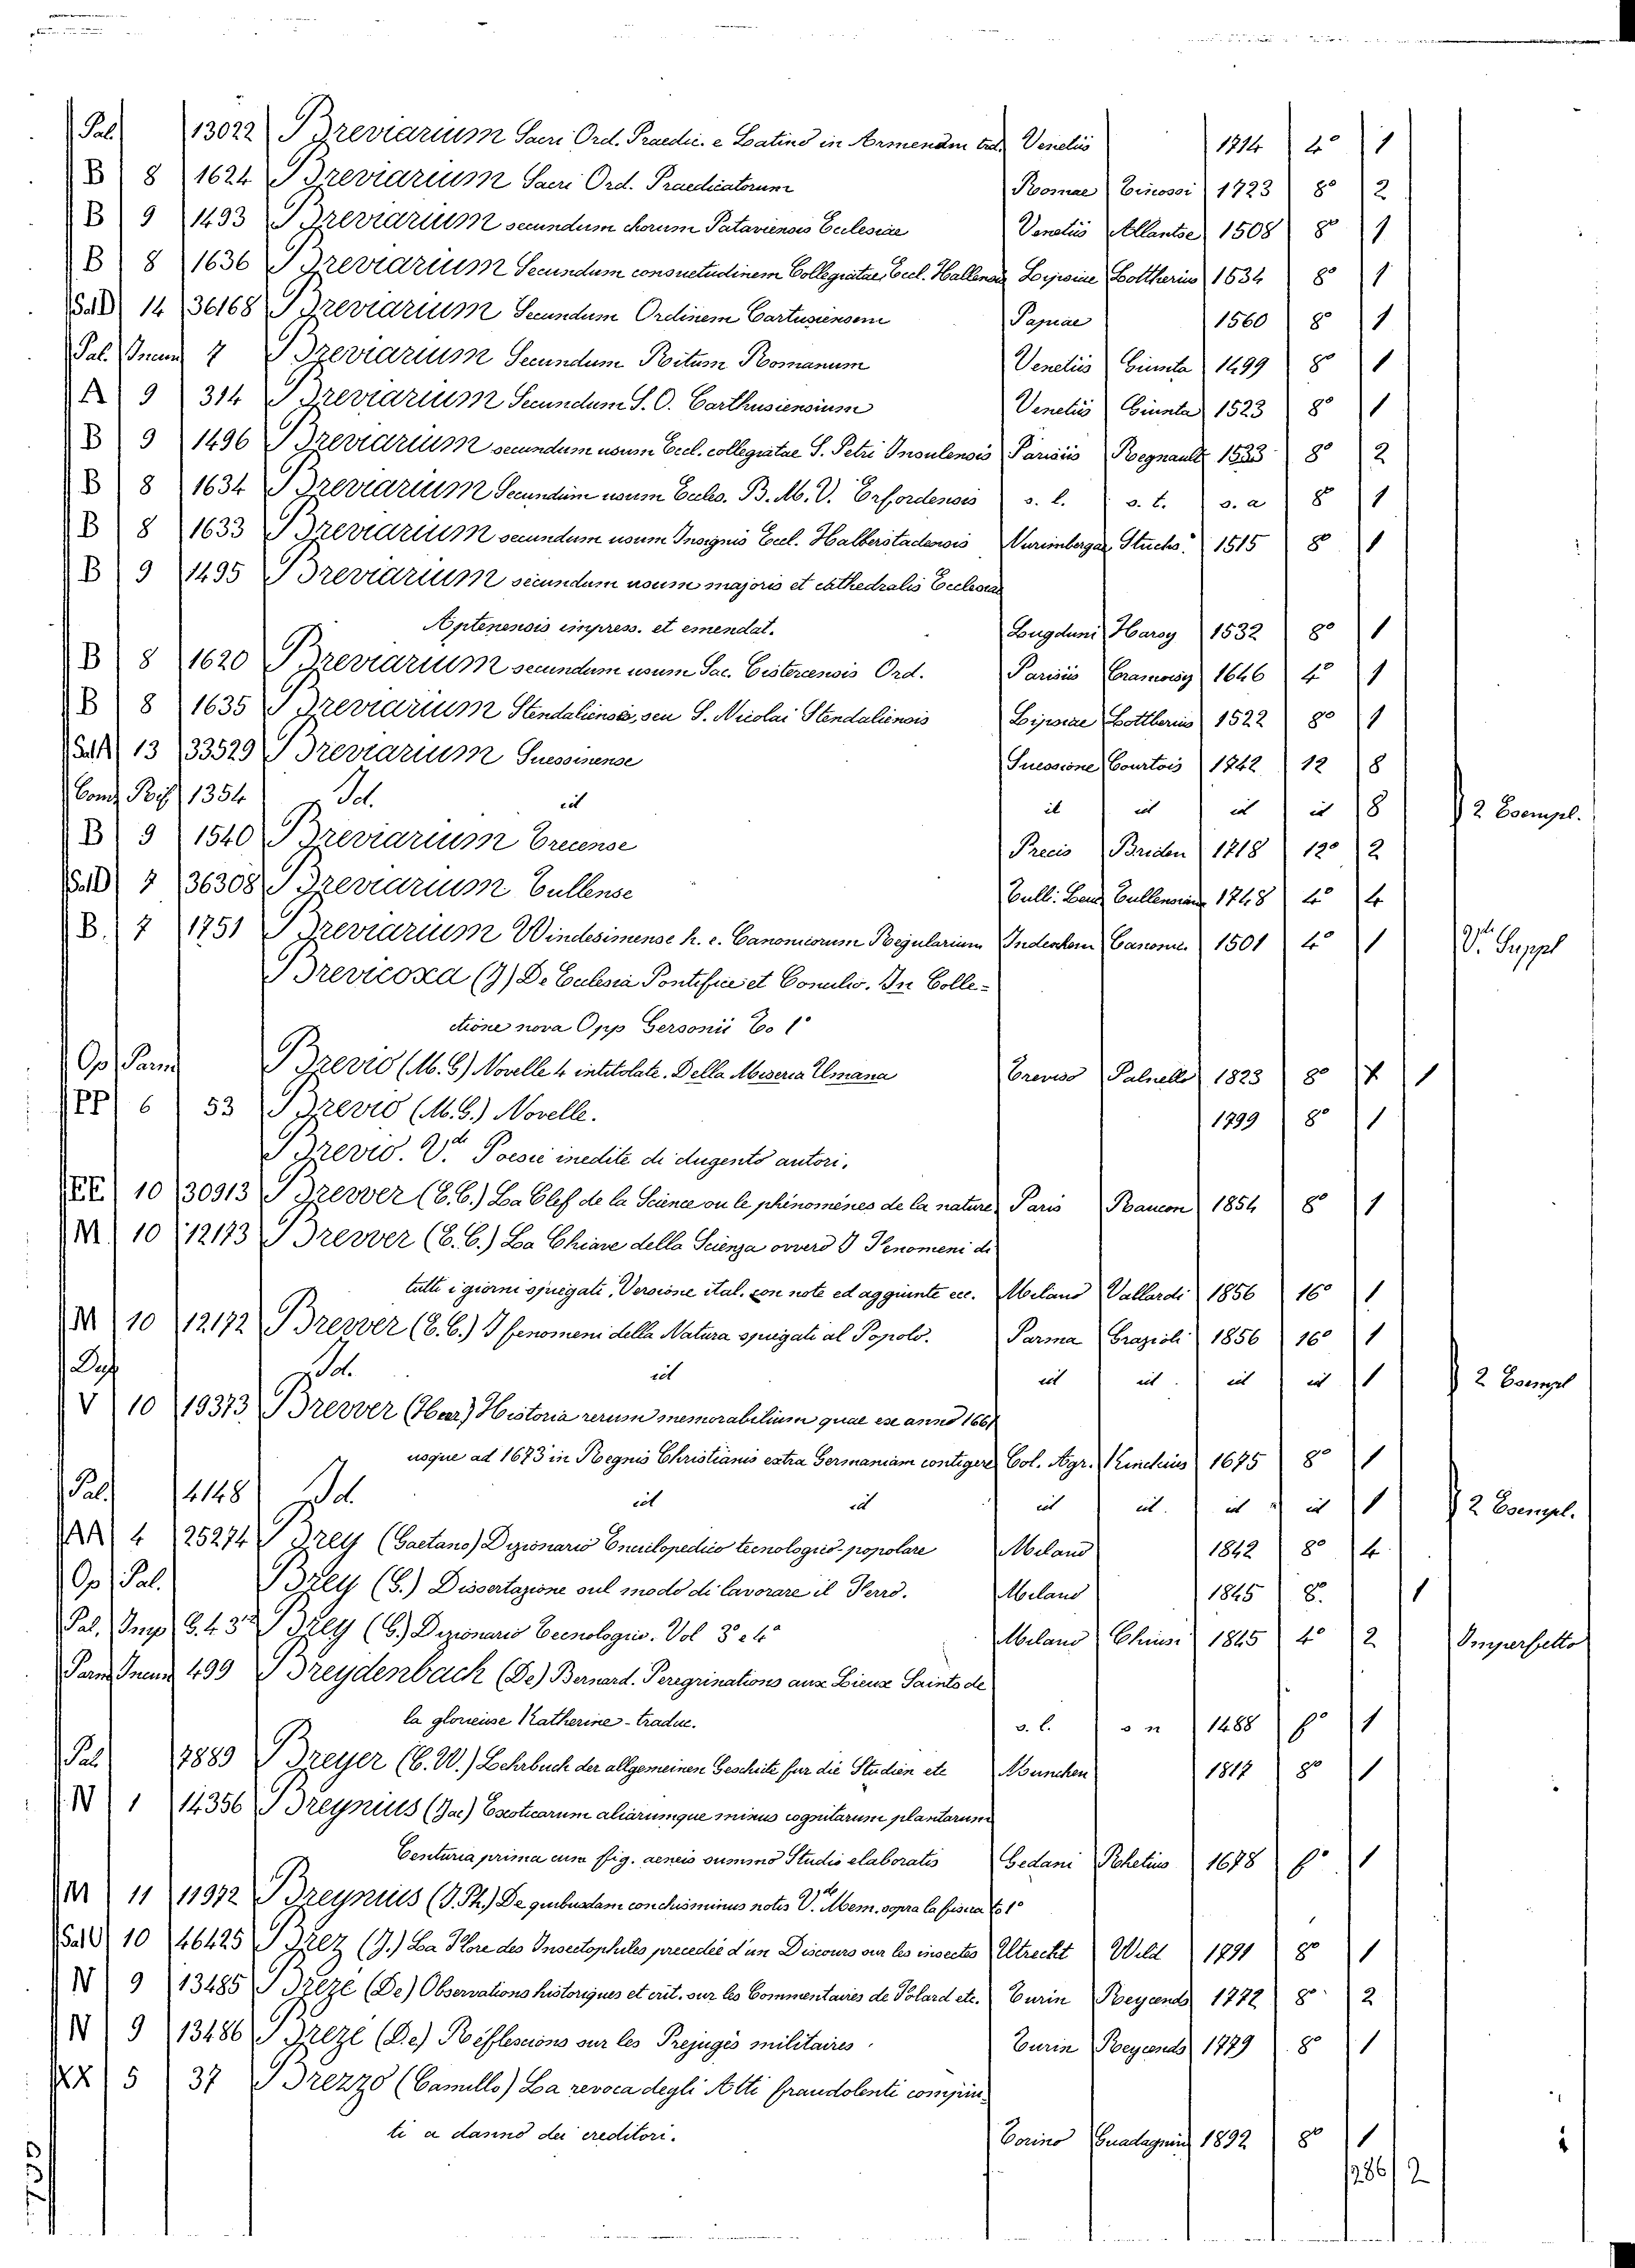 Pal. 13022 Breviarium Sacri Ord. Praedic. e Latino in Armenam trad. Venetiis 1714 4° 1
B 8 1624 Breviarium Sacri Ord. Praedicatorum Romae Cincossi 1723 8° 2
B 9 1493 Breviarium secundum chorum Pataviensis Eclesiae Venetiis Allantse 1508 8° 1
B 8 1636 Breviarium Secundum consuetudinem Collegiatae Eccl. Hallensis Lipsiae Lottherius 1534 8° 1
Sal D 14 36168 Breviarium Secundum Ordinem Cartusiensem Papiae 1560 8° 1
Pal. Incun 7 Breviarium Secundum Ritum Romanum Venetiis Giunta 1499 8° 1
A 9 314 Breviarium Secundum S. O. Carthusiensium Venetiis Giunta 1523 8° 1
B 9 1496 Breviarium secundum usum Eccl. collegiatae S. Petri Insulensis Parisiis Regnault 1533 8° 2
B 8 1634 Breviarium Secundum usum Eccles. B. M. V. Erfordensis s. l. s. t. s. a 8° 1
B 8 1633 Breviarium secundum usum Insignis Eccl. Halberstadensis Nurimbergae Stuchs. 1515 8° 1
B 9 1495 Breviarium secundum usum majoris et cathedralis Ecclesiae
Aptenensis impress. et emendat. Lugduni Harsy 1532 8° 1
B 8 1620 Breviarium secundum usum Sac. Cistercensis Ord. Parisiis Cramoisy 1646 4° 1
B 8 1635 Breviarium Stendaliensis, seu S. Nicolai Stendaliensis Lipsiae Lottherius 1522 8° 1
Sal A 13 33529 Breviarium Suessinense Suessione Courtois 1742 12 8
1354 Id. id id id id id 8 2 Esempl.
B 9 1540 Breviarium Trecense Trecis Briden 1718 12° 2
Sal D 7 36308 Breviarium Tullense Tulli. Leuc Tullensium 1748 4° 4
B. 7 1751 Breviarium Windesimense h. e. Canonicorum Regularium Canonic. 1501 4° 1 V. Suppl
Brevicoxa (J) De Eclesia Pontifice et Concilio. In Colle-
ctione nova Opp Gersonii To 1°
Op Parm Brevio (M. G) Novelle 4 intitolate. Della Miseria Umana Treviso Palnello 1823 8° 1
PP 6 53 Brevio (M. G.) Novelle. 1799 8° 1
Brevio. V. Poesie inedite di dugento autori.
EE 10 30913 Brewer (E. C.) La Clef de la Science ou le phénomènes de la nature Paris 1854 8° 1
M 10 12173 Brewer (E. C.) La Chiave della Scienza ovvero I Fenomeni di
tutti i giorni spiegati, Versione ital. con note ed aggiunte ecc. Milano Vallardi 1856 16° 1
M 10 12172 Brewer (E. C.) I fenomeni della Natura spiegati al Popolo. Parma Grazioli 1856 16° 1
Id. id id id id id 1 2 Esempl
V 10 19373 Brewer (Hen.) Historia rerum memorabilium quae ex anno 1661
usque ad 1673 in Regnis Christianis extra Germaniam contigere Col. Agr. Kinchius 1675 8° 1
Pal. 4148 Id. id id id id id id 1 2 Esempl.
AA 4 25274 Brey (Gaetano) Dizionario Enciclopedico tecnologico popolare Milano 1842 8° 4
Op Pal. Brey (G.) Dissertazione sul modo di lavorare il Ferro. Milano 1845 8. 1
Pal. Imp G. 4 3 Brey (G.) Dizionario Tecnologico. Vol 3° e 4° Milano Chiusi 1845 4° 2 Imperfetto
Parm Incun 499 Breydenbach (De) Bernard. Peregrinations aux Lieux Saints de
la glorieuse Katherine - traduc. s. l. s n 1488 f° 1
Pal 7889 Breyer (C. W.) Lehrbuch der allgemeinen Geschiite fur die Studien etc Munchen 1817 8° 1
N 1 14356 Breynius (Jac) Exoticarum aliarumque minus cognitarum plantarum
Centuria prima cum fig. aeneis summo Studio elaboratis Gedani Rhetius 1678 f° 1
M 11 11972 Breynius (J. Ph.) De quibusdam conchis minus notis V. Mem. sopra la fisica to 1°
Sal U 10 46425 Brez (J.) La Flore des Insectophiles precedée d'un Discours sur les insectes Utrecht Wild 1791 8° 1
N 9 13485 Brezé (De) Observations historiques et crit. sur les Commentaires de Folard etc. Turin Reycends 1772 8° 2
N 9 13486 Brezé (De) Reflexions sur les Prejugés militaires Turin Reycends 1779 8° 1
XX 5 37 Brezzo (Camillo) La revoca degli Atti fraudolenti compiu-
ti a danno dei creditori. Torino Guadagnini 1892 8° 1
286 2